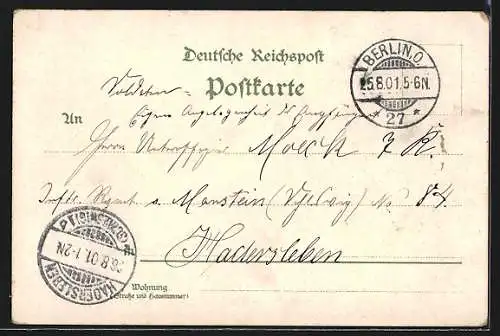 Deutsche Reichspost
Postkarte
BERLIN, O.
25.8.01.5-6N.
* 27 *
Soldaten
Eigene Angelegenheit des Empfängers
An
Herrn Unteroffizier Moeck 7 K.
Inftr. Regmt v. Manstein (Schleswig) No 84
Hadersleben
26.8.01.1-2N.
HADERSLEBEN
Wohnung
(Straße und Hausnummer)